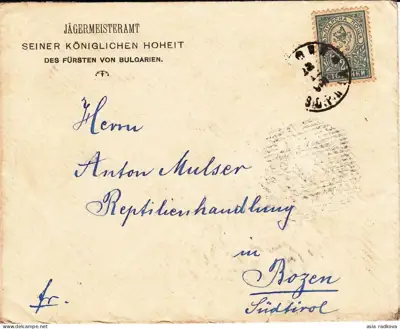 JÄGERMEISTERAMT
SEINER KÖNIGLICHEN HOHEIT
DES FÜRSTEN VON BULGARIEN.
Herrn
Anton Mulser
Reptilienhandlung
in
Bozen
Südtirol
fr.
asia radkova